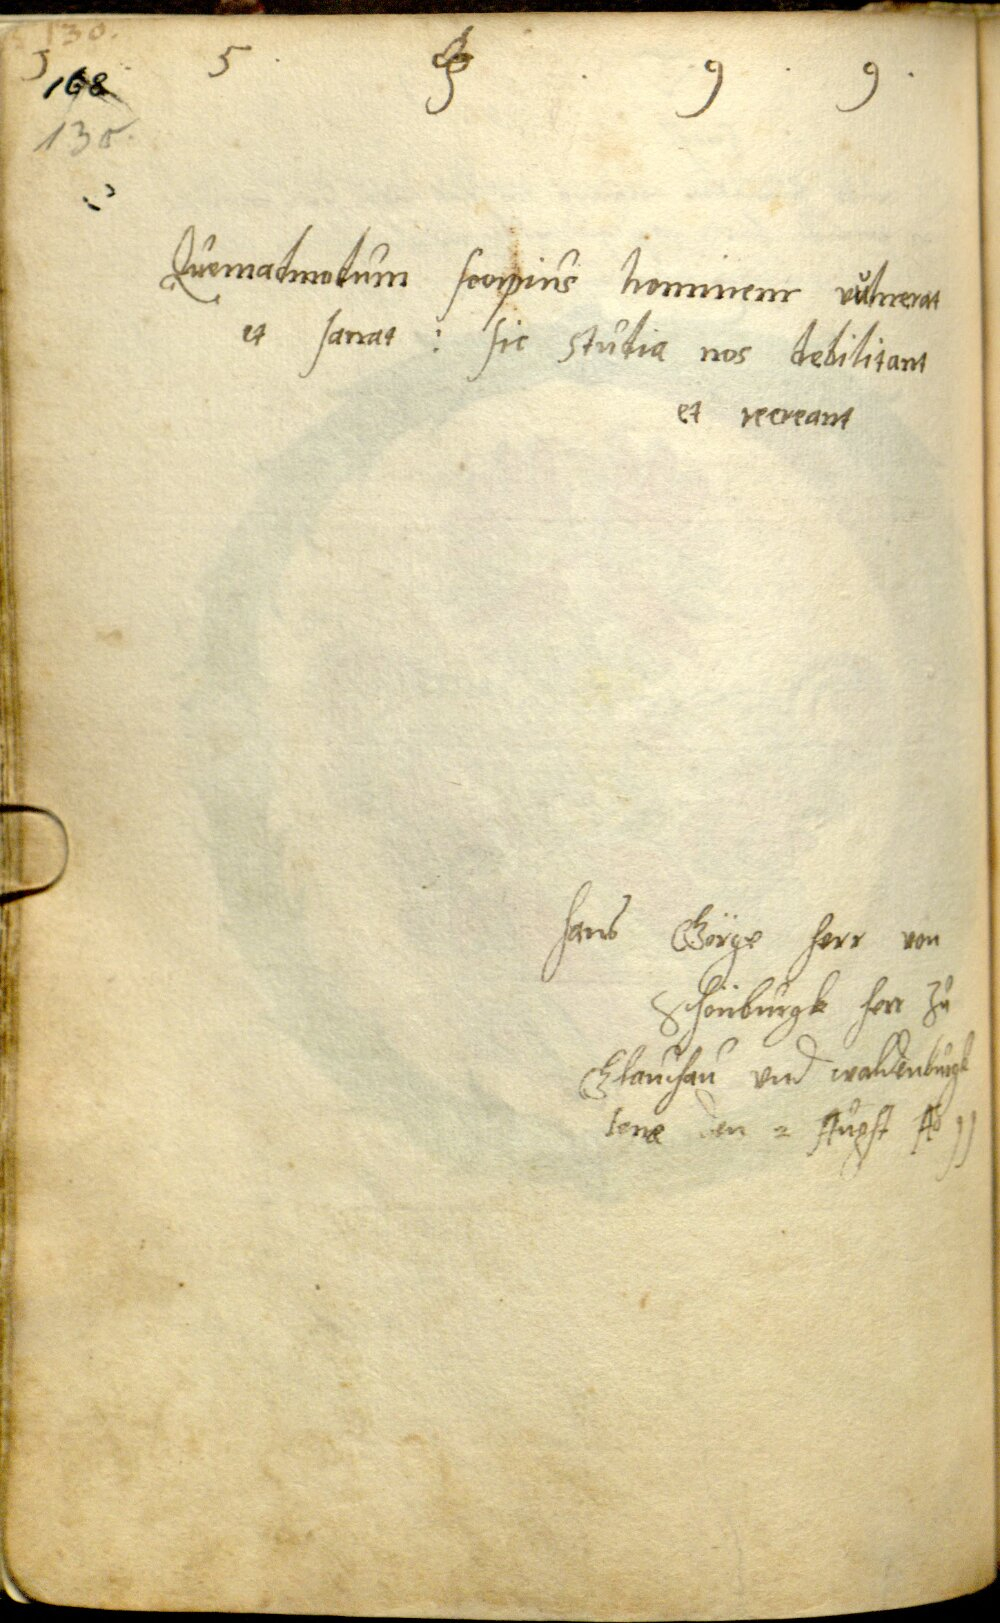 130.
5 . 5 . . 9 . 9 .
168
130.
Quemadmodum scorpius hominem vulnerat
et sanat : sic studia nos debilitant
et recreant
Hans Görge herr von
Schönburgk herr zu
Glauchau vnd waldenburgk
Iene den 2 Augst Ao 99